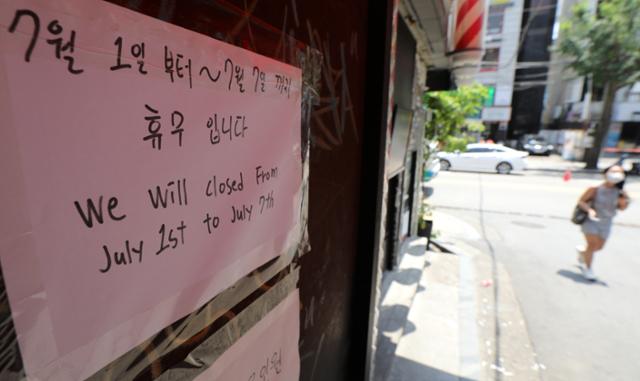 7월 1일 부터~7월 7일 까지
휴무 입니다
We Will closed From
July 1st to July 7th